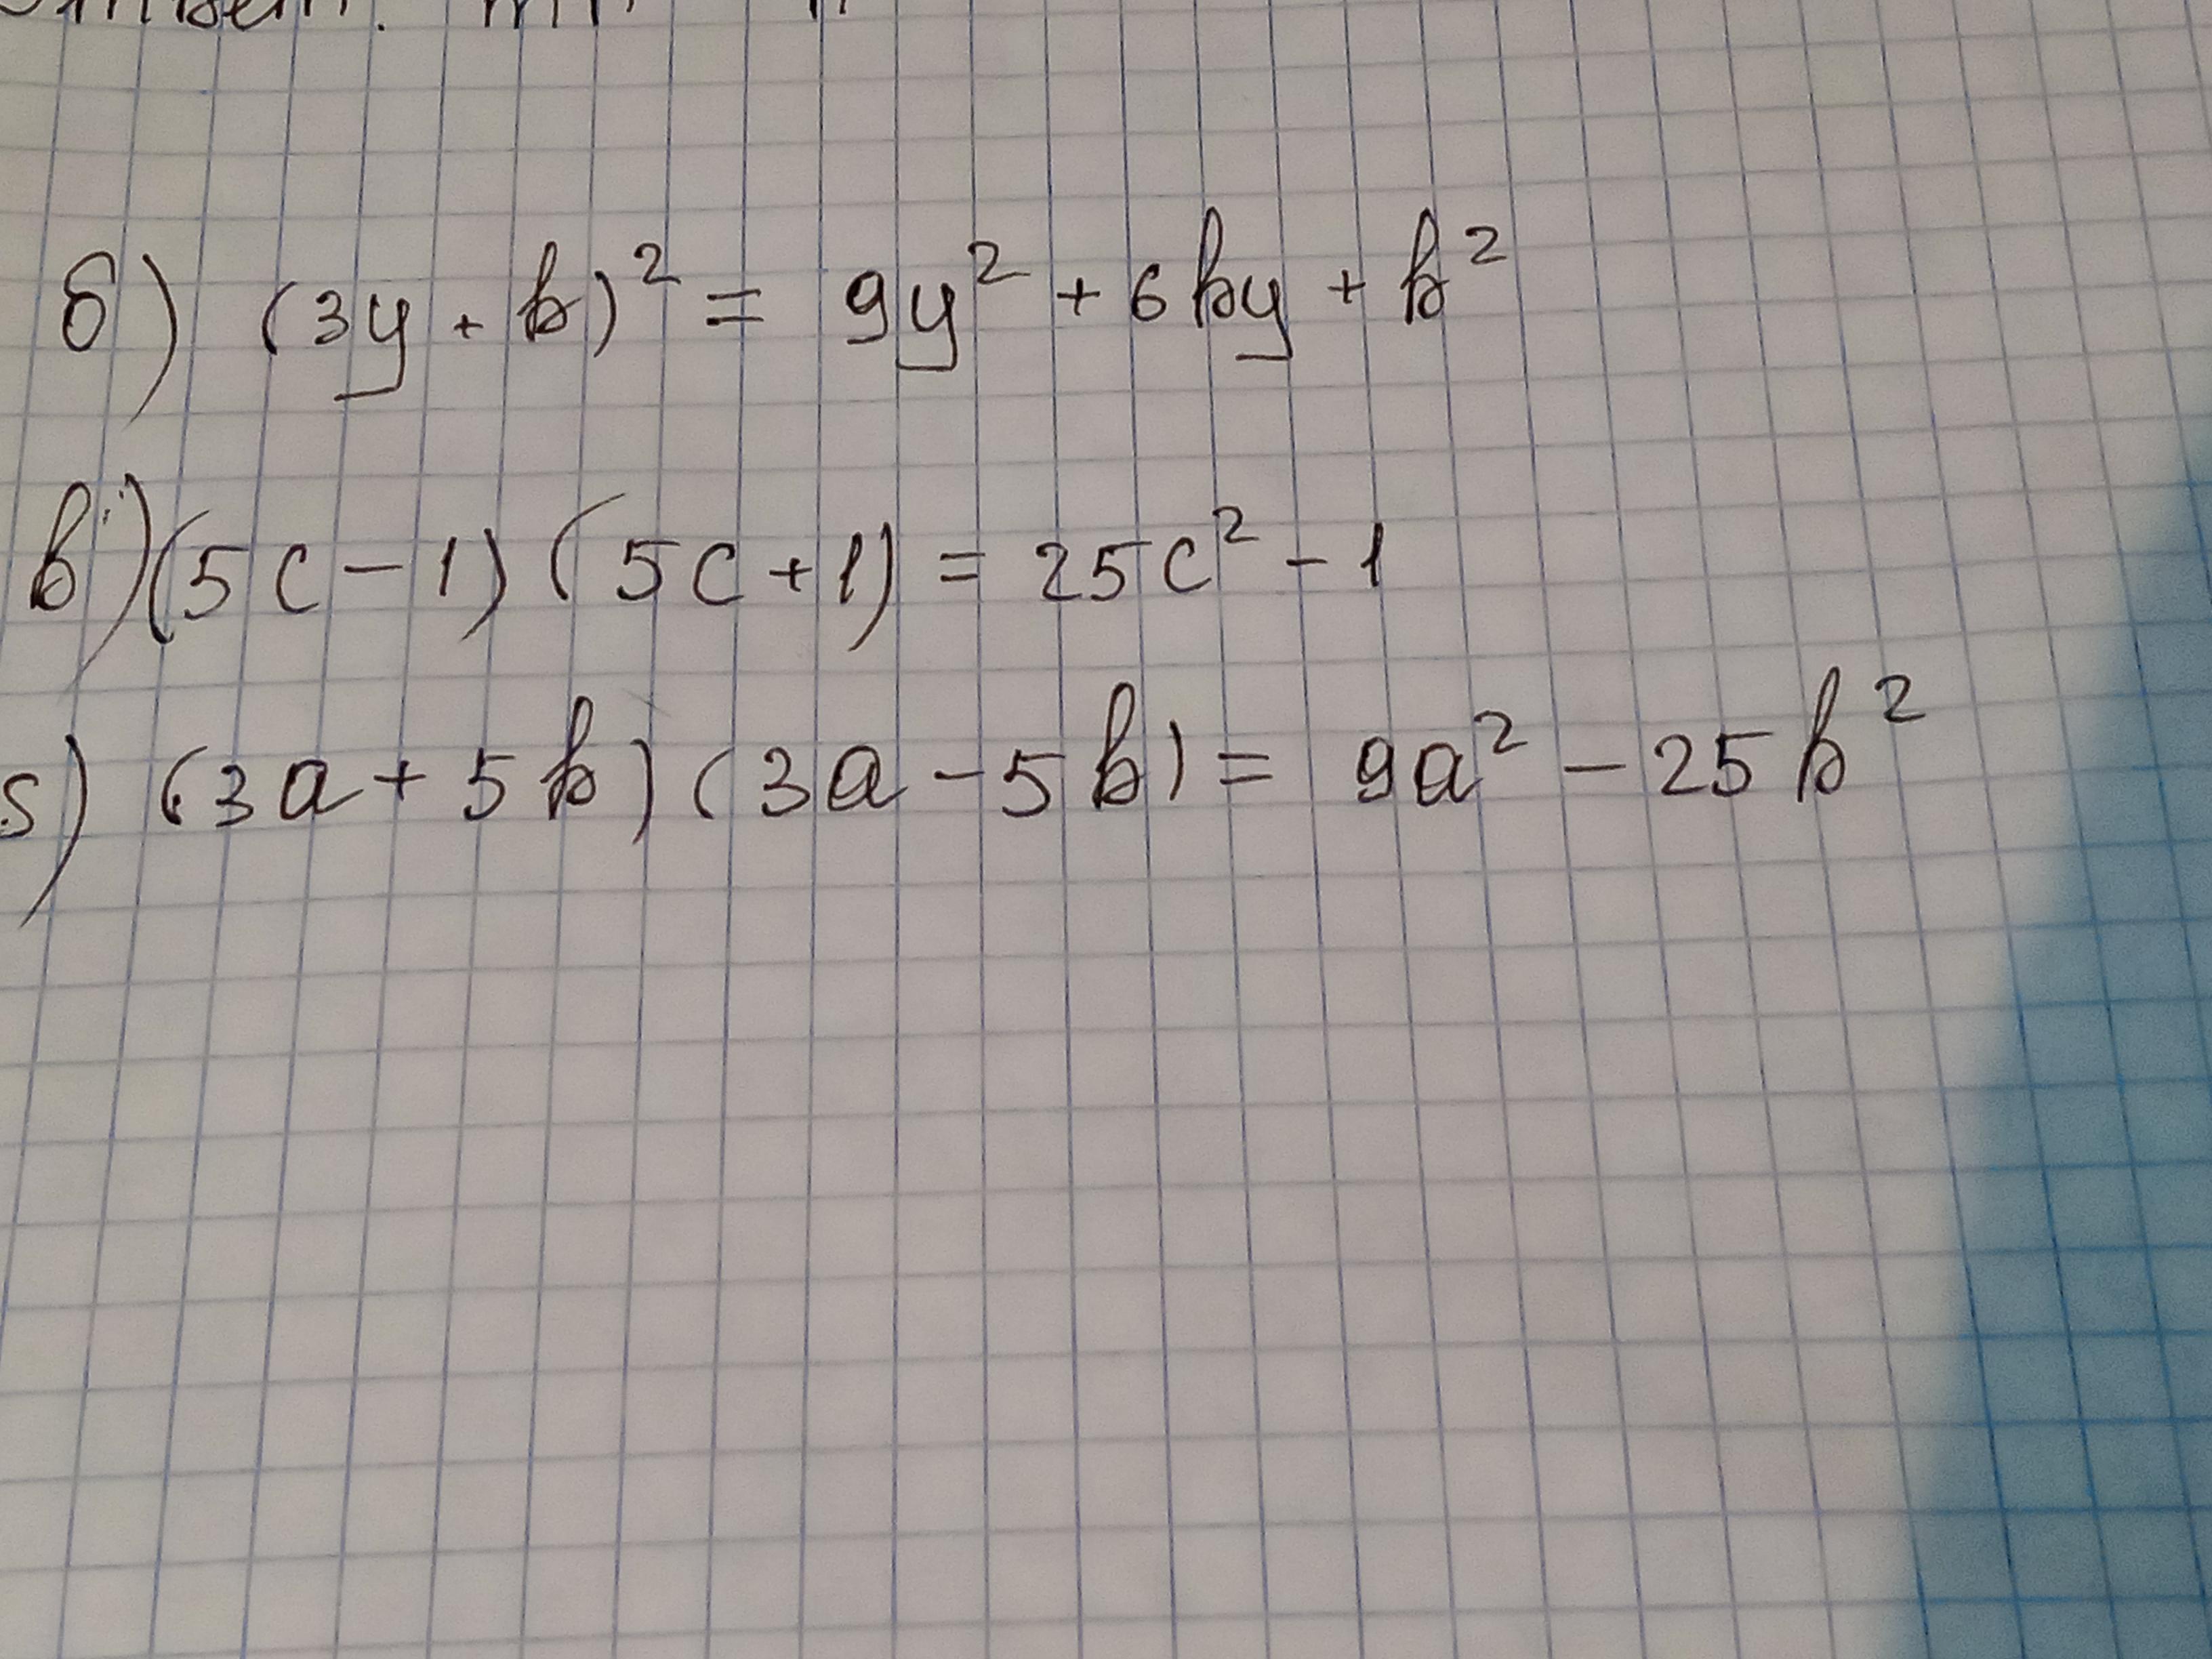 б) (3y + b)² = 9y² + 6by + b²
в) (5c - 1) (5c + 1) = 25c² - 1
) (3a + 5b) (3a - 5b) = 9a² - 25b²